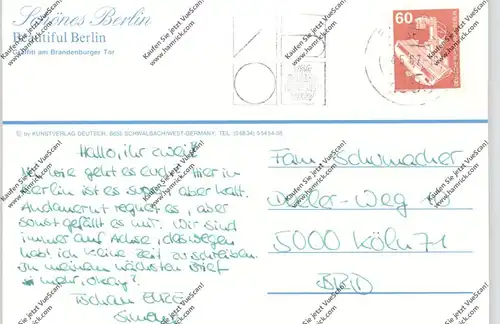 Schönes Berlin
Beautiful Berlin
am Brandenburger Tor
60
© by KUNSTVERLAG DEUTSCH, SCHWALBACH/WEST-GERMANY, TEL.
Hallo, ihr zwei!
Na, wie geht es euch? Hier in
Berlin ist es super, aber kalt.
Andauernd regnet es, aber
sonst gefällt es mir. Wir sind
immer auf Achse, deswegen
hab' ich keine Zeit zu schreiben.
In meinem nächsten Brief
mehr, okay?
Tschau EURE
Fam. Schumacher
Weg
5000 Köln 71
BRD
Kaufen Sie jetzt VueScan!
www.hamrick.com